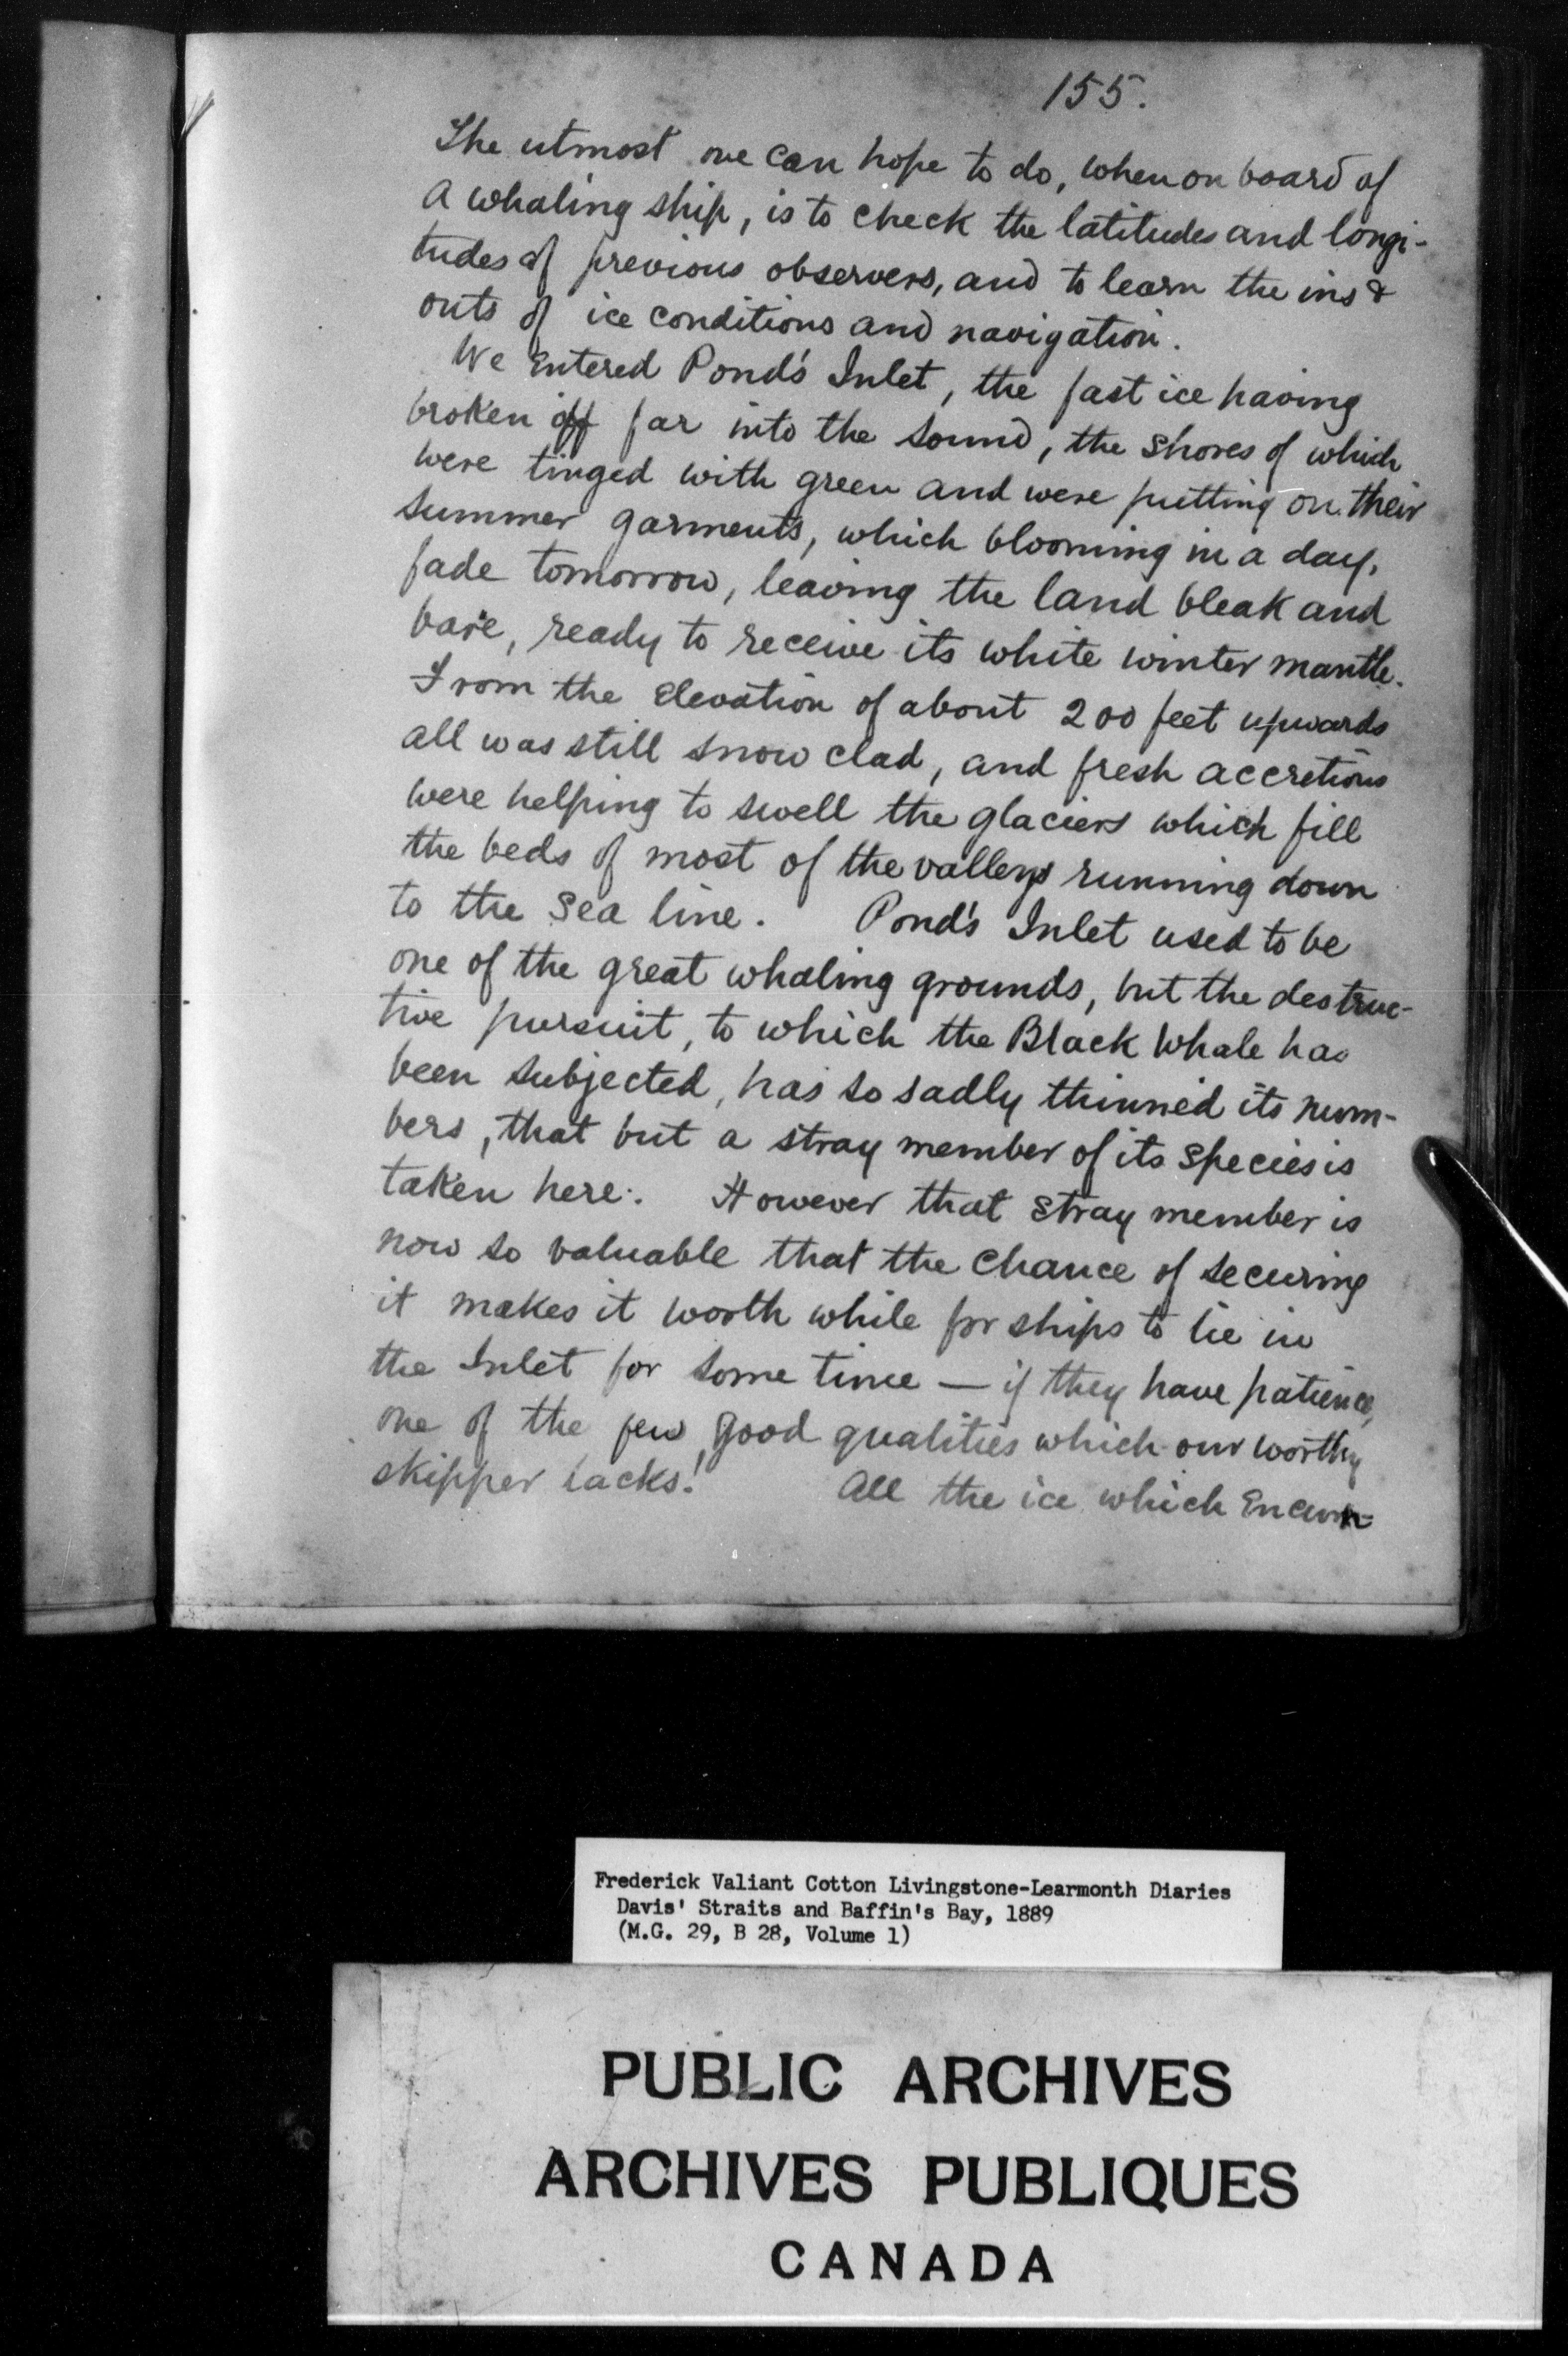 155.
The utmost one can hope to do, when on board of
a whaling ship, is to check the latitudes and longi-
tudes of previous observers, and to learn the ins &
outs of ice conditions and navigation.
We entered Pond's Inlet, the fast ice having
broken off far into the sound, the shores of which
were tinged with green and were putting on their
summer garments, which blooming in a day,
fade tomorrow, leaving the land bleak and
bare, ready to receive its white winter mantle.
From the elevation of about 200 feet upwards
all was still snow clad, and fresh accretions
were helping to swell the glaciers which fill
the beds of most of the valleys running down
to the sea line. Pond's Inlet used to be
one of the great whaling grounds, but the destruc-
tive pursuit, to which the Black Whale has
been subjected, has so sadly thinned its num-
bers, that but a stray member of its species is
taken here. However that stray member is
now so valuable that the chance of securing
it makes it worth while for ships to lie in
the Inlet for some time — if they have patience,
one of the few good qualities which our worthy
skipper lacks! All the ice which encum-
Frederick Valiant Cotton Livingstone-Learmonth Diaries
Davis' Straits and Baffin's Bay, 1889
(M.G. 29, B 28, Volume 1)
PUBLIC ARCHIVES
ARCHIVES PUBLIQUES
CANADA